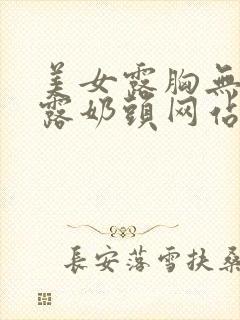 美女露胸無
露奶頭网佔
長安落雪扶桑